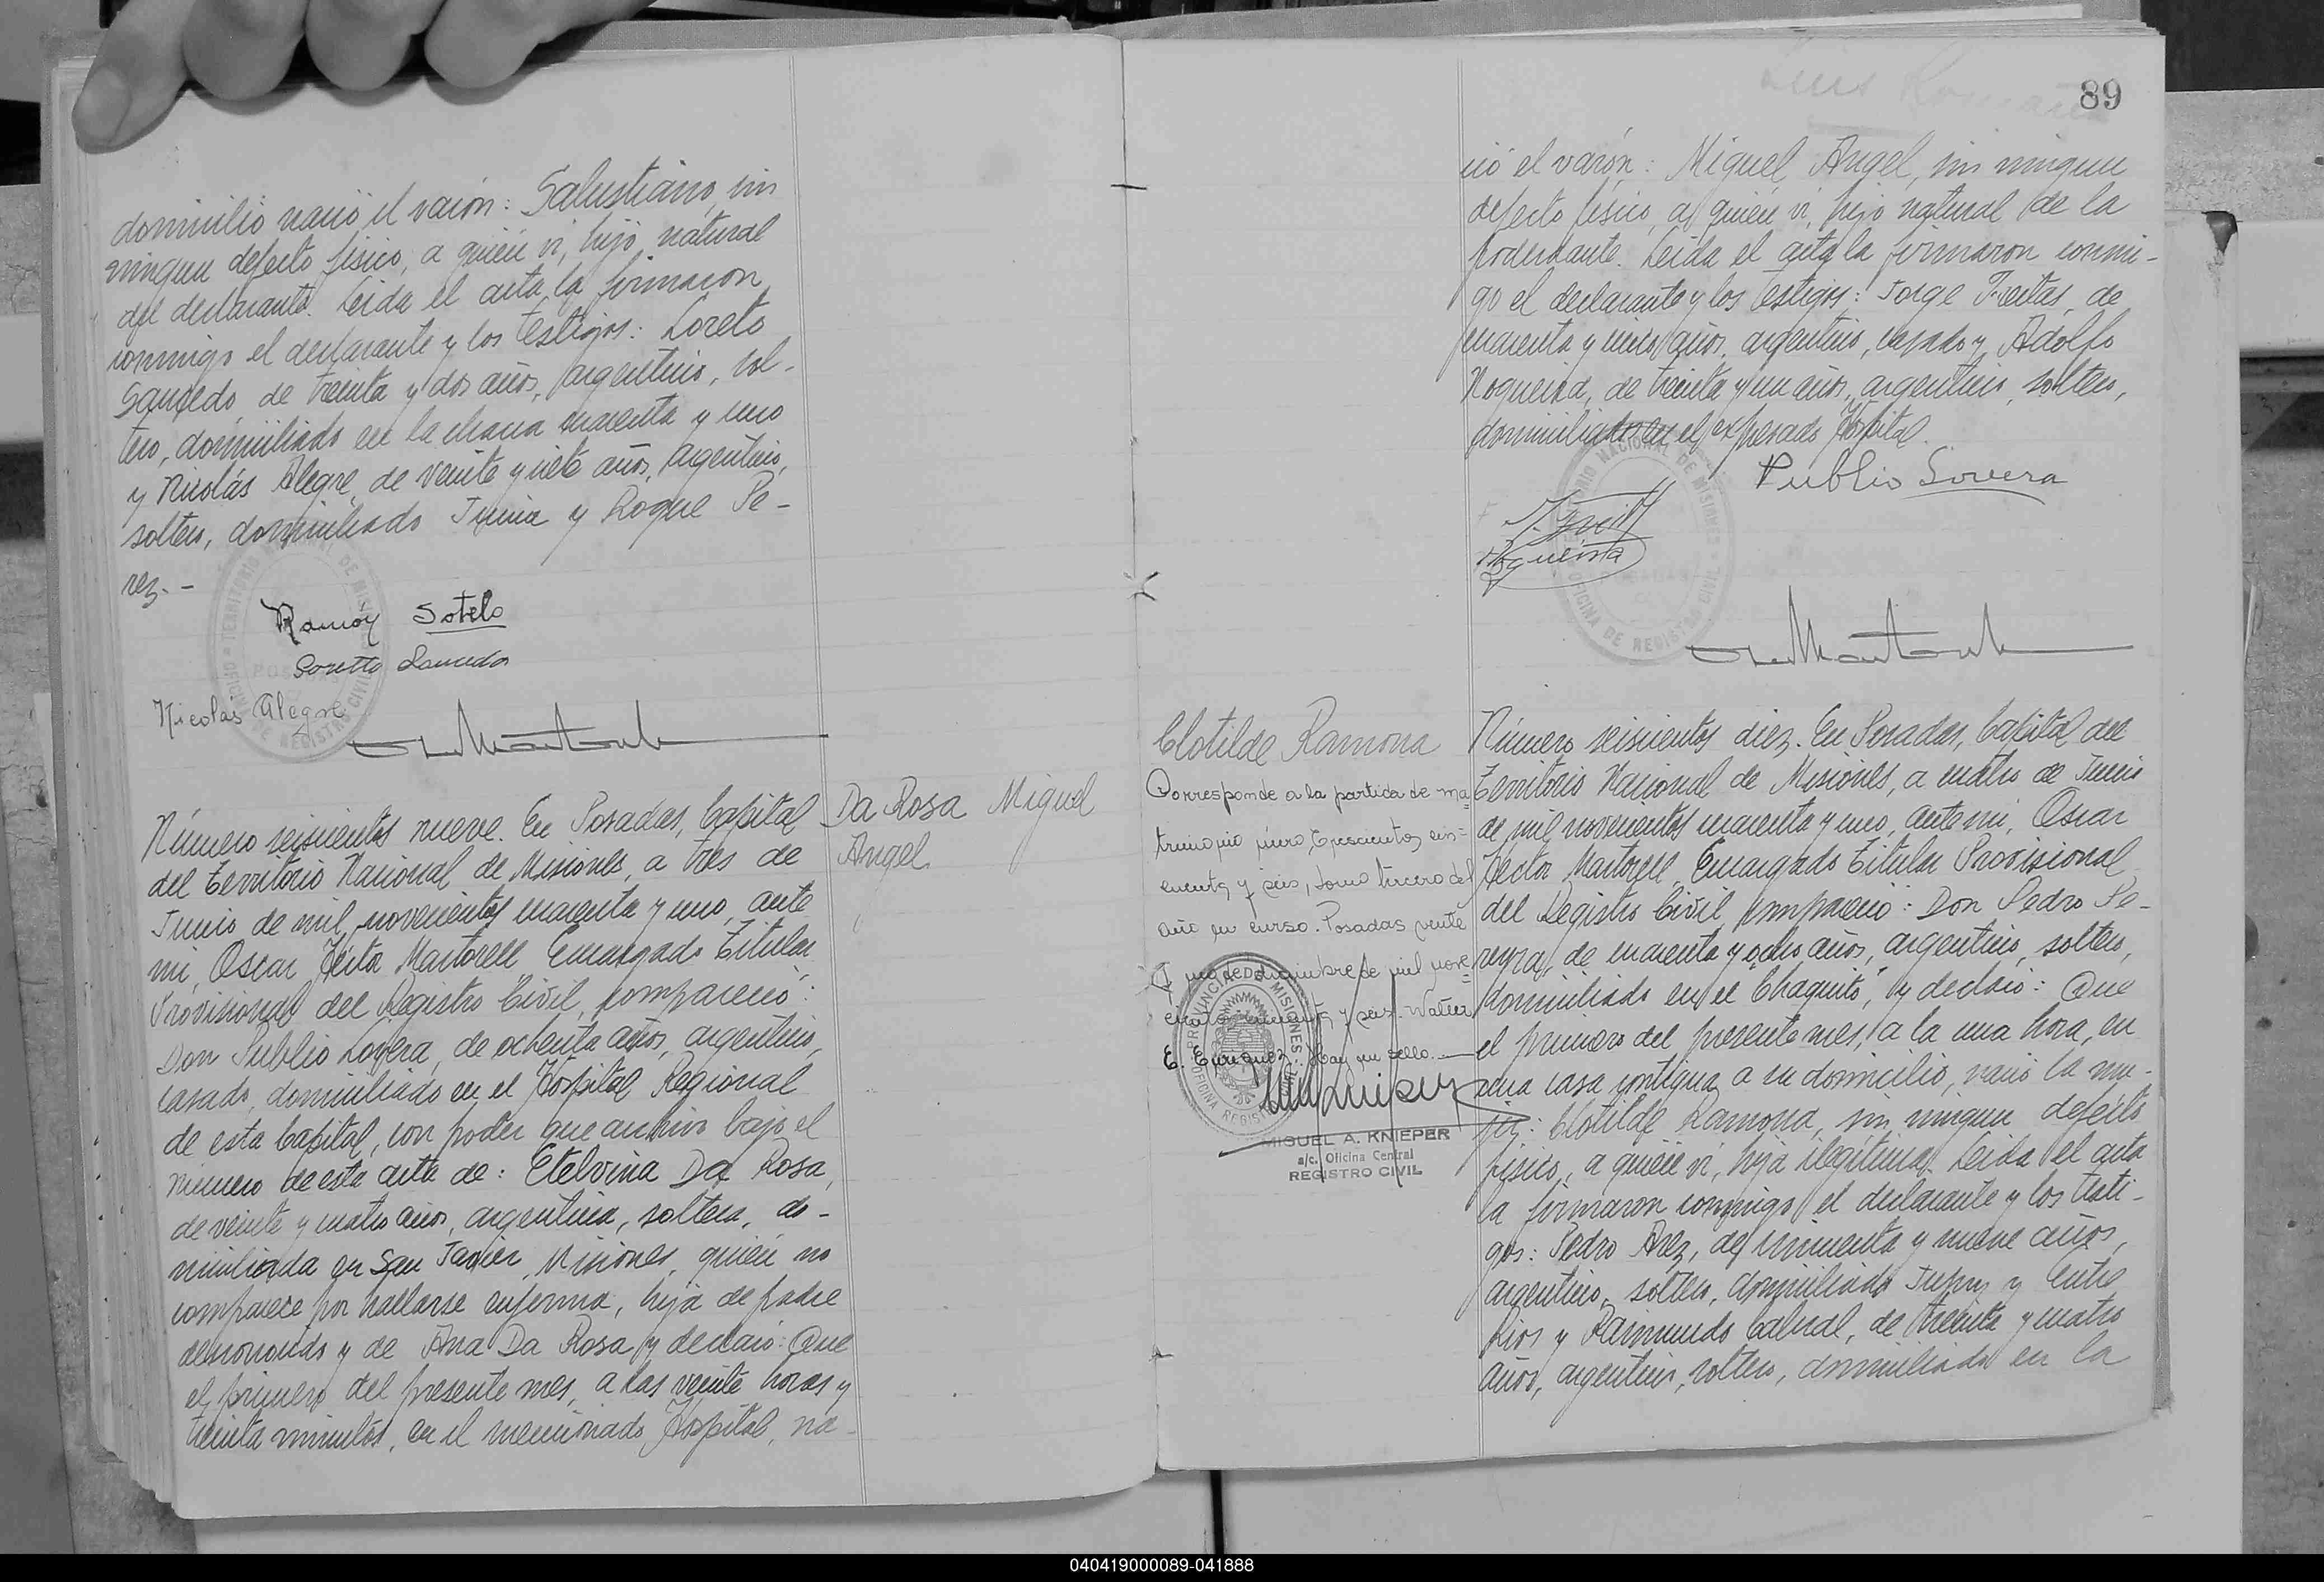 domicilio nació el varón: Salustiano, sin
ningun defecto físico, a quién vi, hijo natural
del declarante. Leida el acta la firmaron
conmigo el declarante y los testigos: Loreto
Saucedo, de treinta y dos años, argentino, sol-
tero, domiciliado en la chacra cuarenta y uno
y Nicolás Alegre, de veinte y siete años, argentino,
soltero, domiciliado y Roque Pe-
rez. -
Ramón Sotelo
Loretto Saucedo
Nicolas Alegre
Número seiscientos nueve. En Posadas, Capital
del Territorio Nacional de Misiones, a tres de
Junio de mil novecientos cuarenta y uno, ante
mi, Oscar Héctor Martorell Encargado Titular
Provisional del Registro Civil, compareció:
Don Publio Lovera, de ochenta años, argentino,
casado, domiciliado en el Hospital Regional
de esta Capital, con poder que archivo bajo el
número de esta acta de: Etelvina Da Rosa,
de veinte y cuatro años, argentina, soltera, do-
miciliada en San Javier, Misiones, quién no
comparece por hallarse enferma, hija de padre
desconocido y de Ana Da Rosa y declaró: Que
el primero del presente mes, a las veinte horas y
treinta minutos, en el mencionado Hospital, na-
Da Rosa Miguel
Angel
89
ció el varón: Miguel Angel, sin ningun
defecto físico, a quién vi, hijo natural de la
poderdante. Leida el acta la firmaron conmi-
go el declarante y los testigos: Jorge Freitas, de
cuarenta y cinco años, argentino, casado y Adolfo
Nogueira, de treinta y un años, argentino, soltero,
domiciliados en el expresado Hospital.
Publio Lovera
J. Freit
Nogueira
TERRITORIO NACIONAL DE MISIONES
OFICINA DE REGISTRO CIVIL
Clotilde Ramona
Corresponde a la partida de ma=
trimonio número trescientos cin=
cuenta y seis, tomo tercero del
año en curso. Posadas veinte
y uno de Diciembre de mil nove=
cientos cincuenta y seis. Walter
E. Enriquez. Hay un sello.
PROVINCIA DE MISIONES
MIGUEL A. KNIEPER
a/c. Oficina Central
REGISTRO CIVIL
Número seiscientos diez. En Posadas, Capital del
Territorio Nacional de Misiones, a cuatro de Junio
de mil novecientos cuarenta y uno, ante mi, Oscar
Héctor Martorell, Encargado Titular Provisional
del Registro Civil, compareció: Don Pedro Pe-
reyra, de cuarenta y ocho años, argentino, soltero,
domiciliado en el "Chaquito", y declaró: Que
el primero del presente mes, a la una hora, en
una casa contigua a su domicilio, nació la mu-
jer: Clotilde Ramona, sin ningun defecto
físico, a quién vi, hija ilegítima. Leida el acta
la firmaron conmigo el declarante y los testi-
gos: Pedro Arez, de cincuenta y nueve años,
argentino, soltero, domiciliado Jujuy y Entre
Rios y Raimundo Cabral, de treinta y cuatro
años, argentino, soltero, domiciliado en la
040419000089-041888